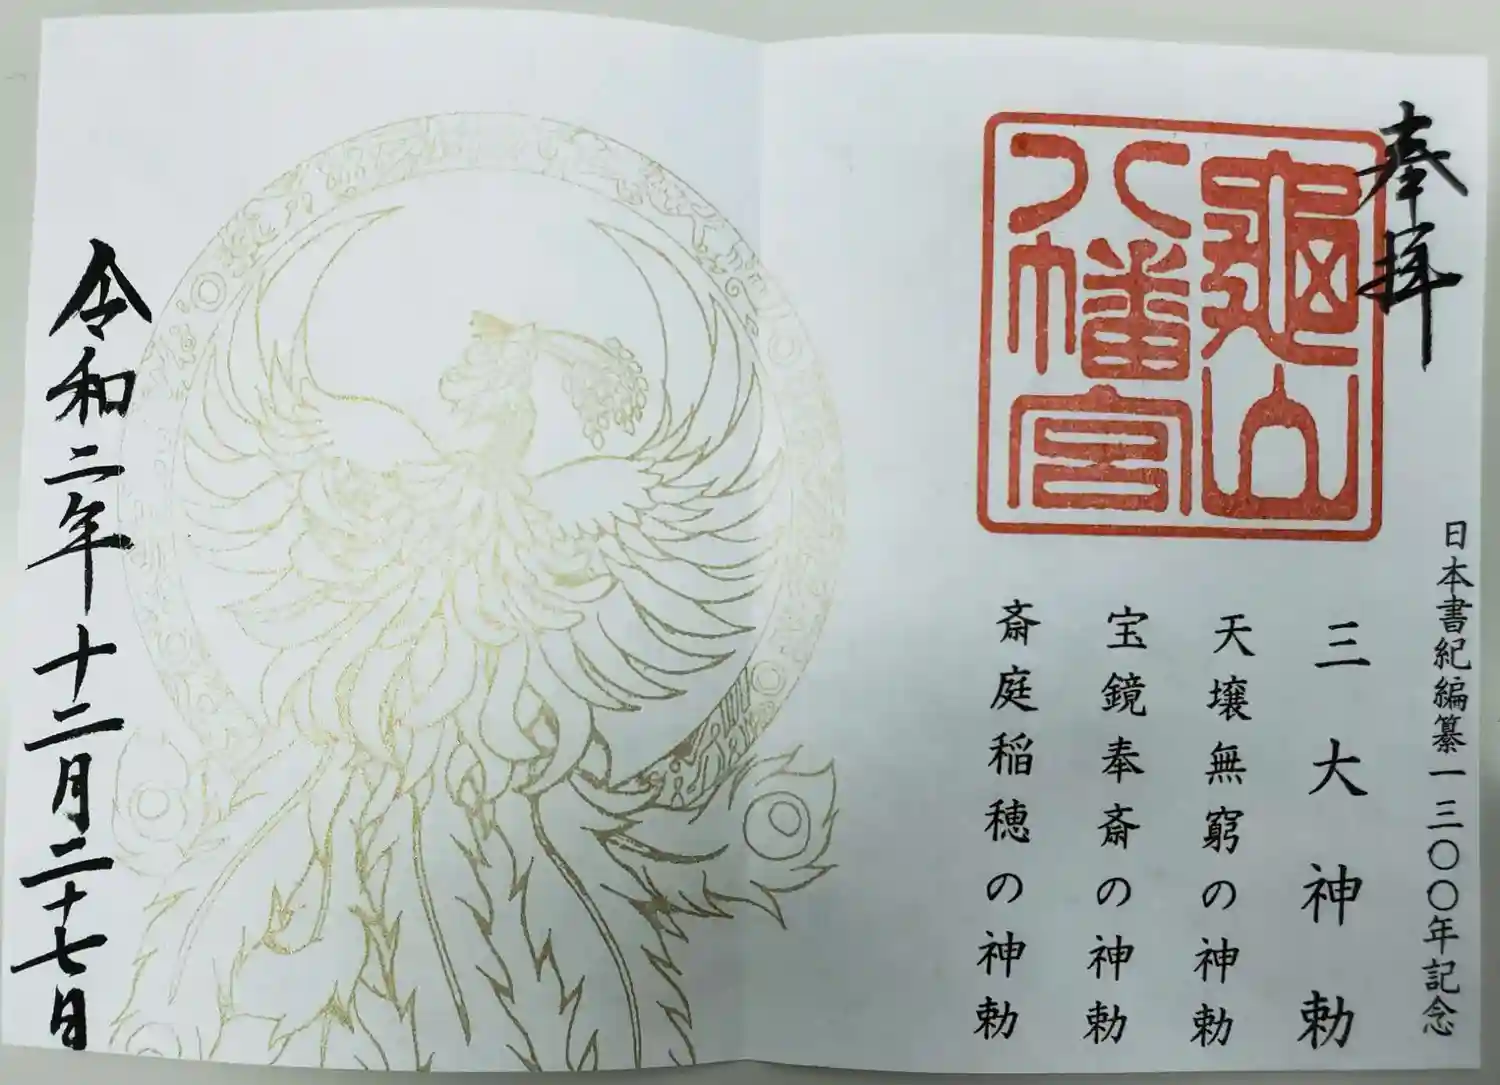 奉拝
日本書紀編纂一三〇〇年記念
龜山
八幡宮
三大神勅
天壌無窮の神勅
宝鏡奉斎の神勅
斎庭稲穂の神勅
令和二年十二月二十七日